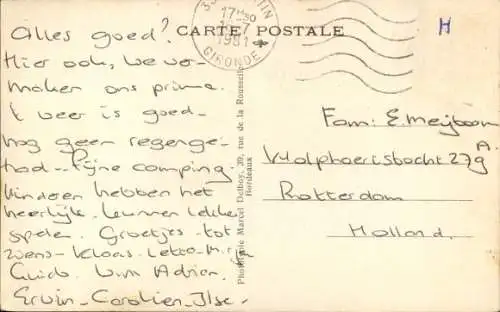 Alles goed?
Hier ook, we ver-
maken ons prima.
't weer is goed-
nog geen regenge-
had-- Fijne camping
Kinderen hebben het
heerlijk. kunnen lekker
spelen. Groetjes - tot
ziens - Klaas -
Guido. Wim Adrian.
Erwin - Carolien - Ilse -
CARTE POSTALE
17H30
1951
GIRONDE
H
Fam: E. Meijboom
Vulphaertsbocht 279
A.
Rotterdam
Holland.
Phototypie Marcel Delboy, 20, rue de la Rousselle
Bordeaux